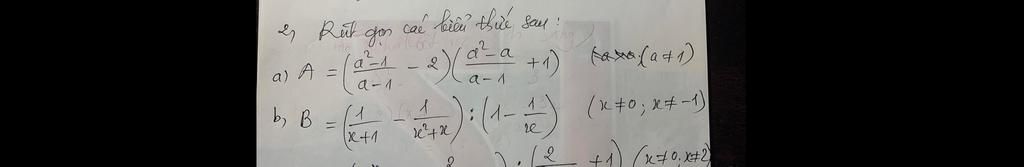 2, Rút gọn các biểu thức sau:
a) A = ((a²-1)/(a-1) - 2)((a²-a)/(a-1) + 1) (a ≠ 1)
b, B = (1/(x+1) - 1/(x²+x)) : (1 - 1/x) (x ≠ 0; x ≠ -1)
2 ) : (2 + 1) (x ≠ 0, x ≠ 2